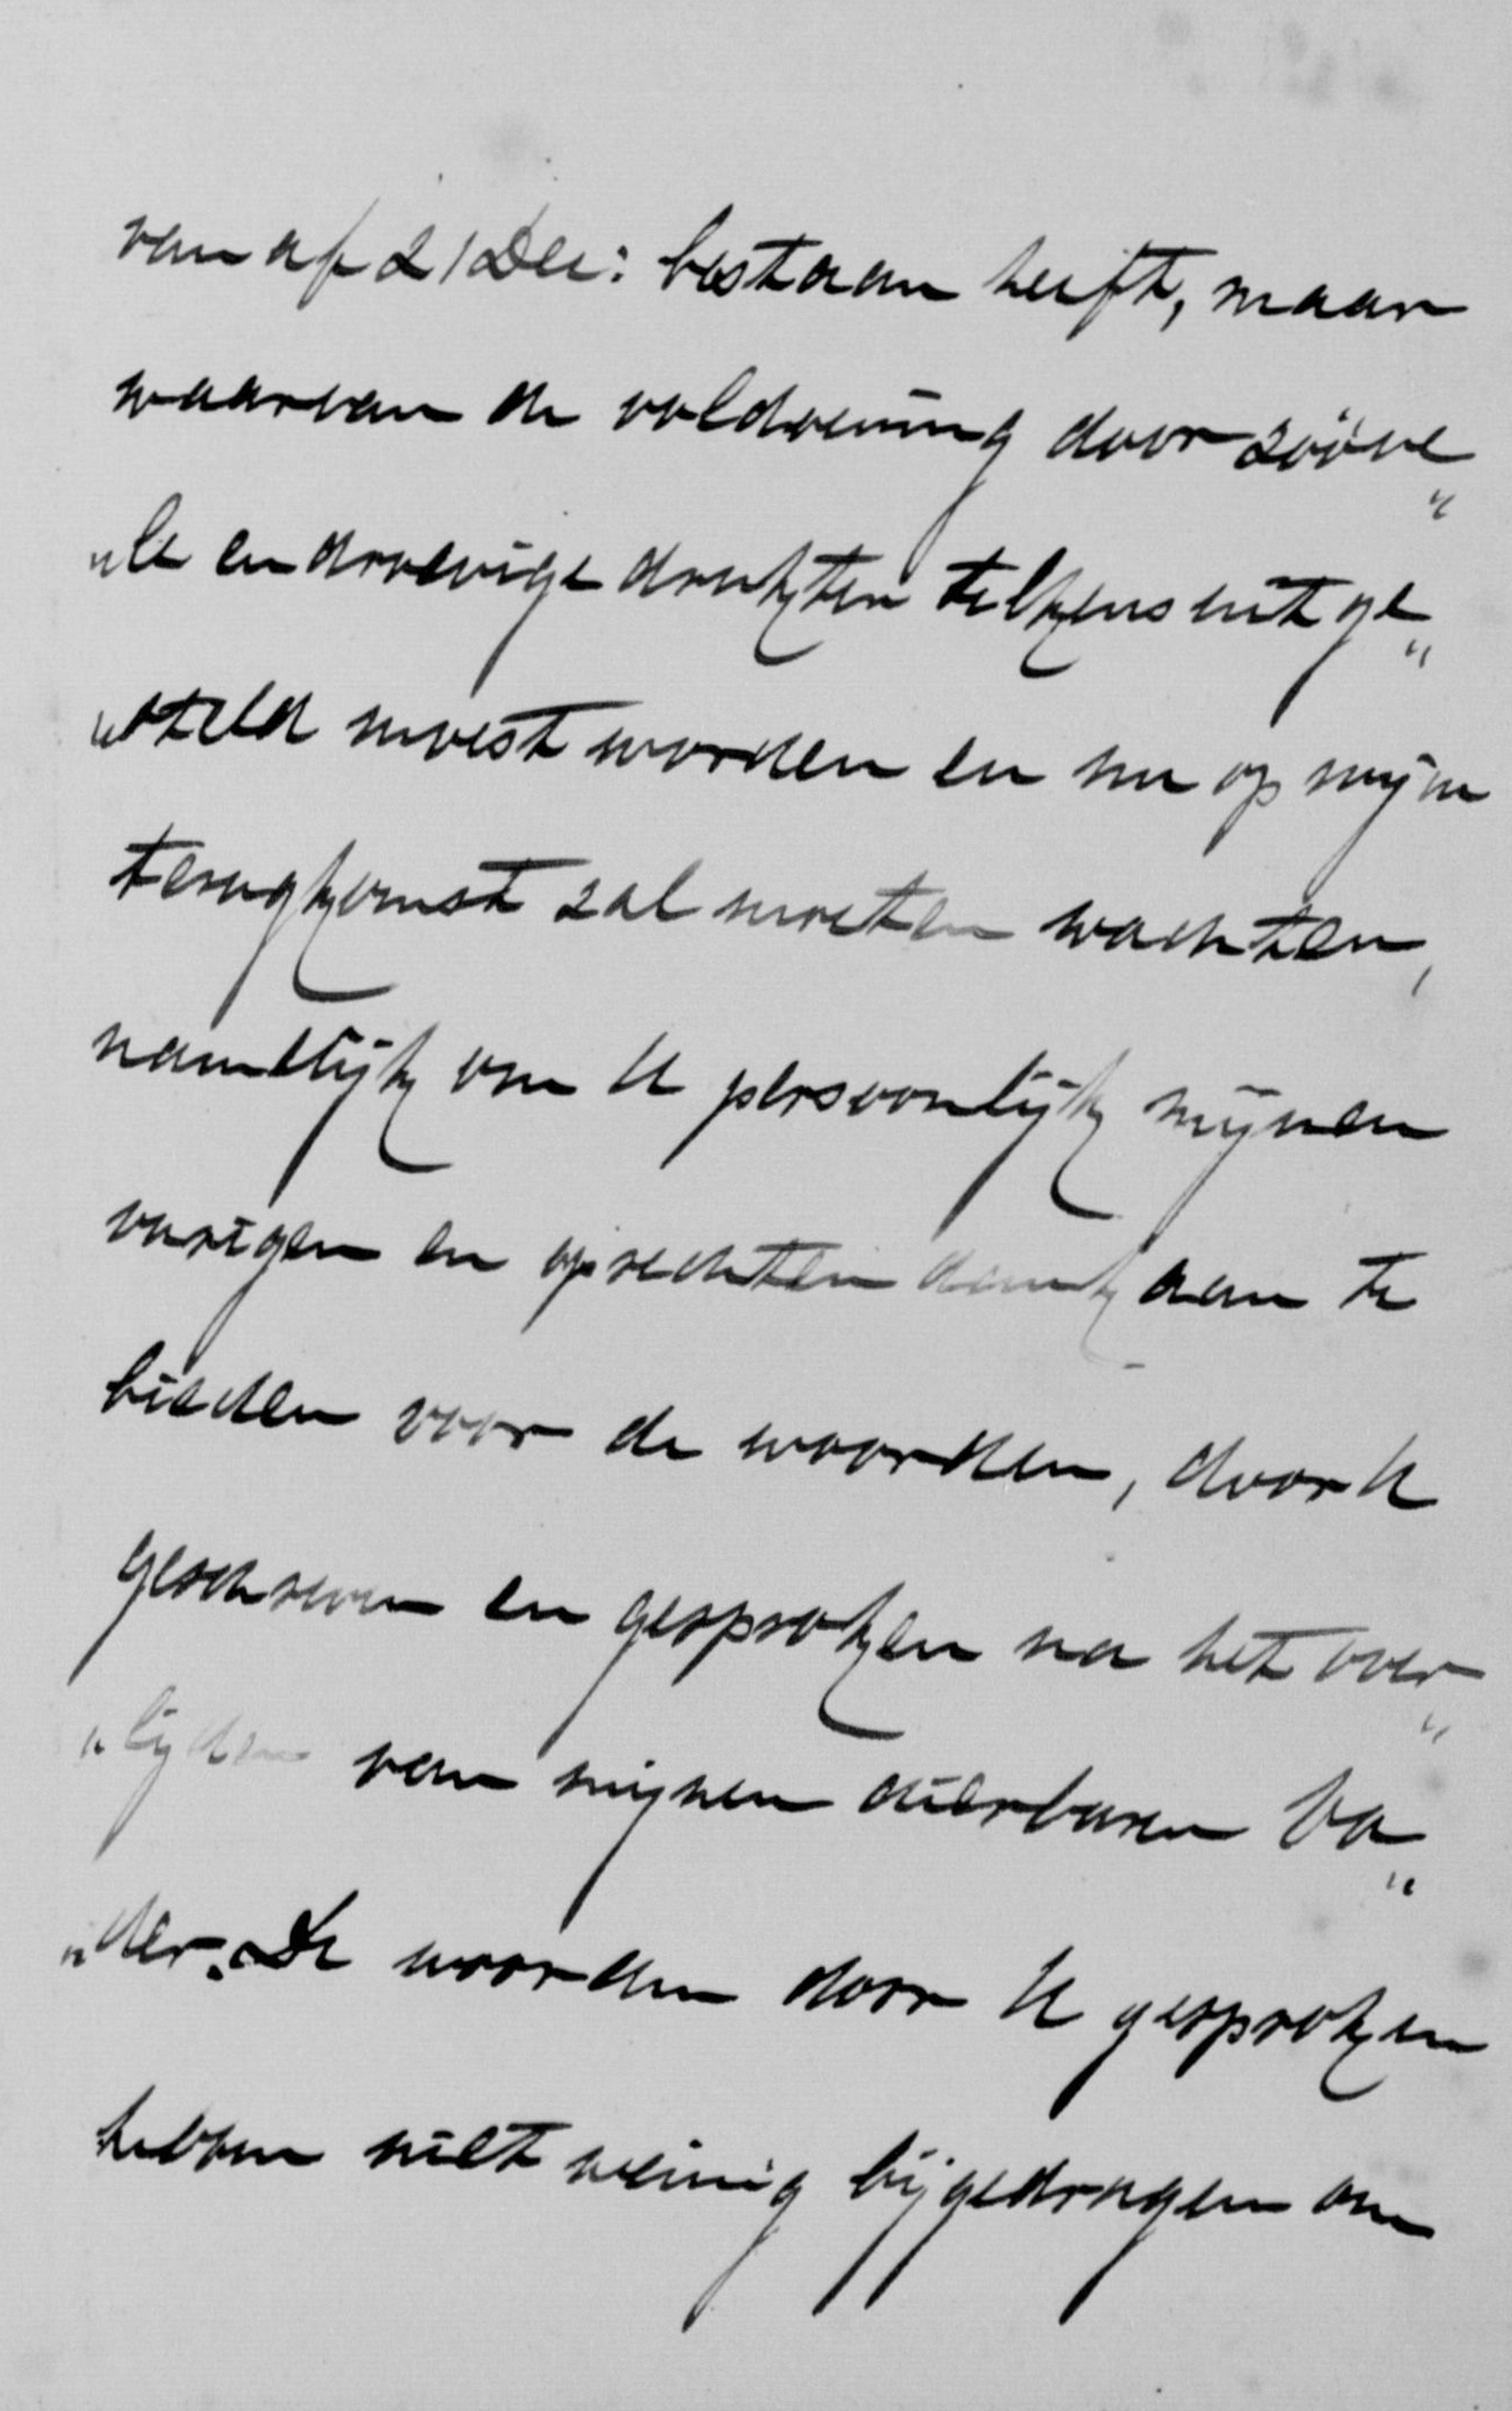 van af 21 Dec: bestaan heeft, maar
waarvan de voldoening door zóóve„
„le en droevige drukten telkens uitge„
„steld moest worden en nu op mijne
terugkomst zal moeten wachten,
namelijk om U persoonlijk mijnen
vurigen en oprechten dank aan te
bieden voor de woorden, door U
geschreven en gesproken na het over„
„lijden van mijnen dierbaren Va„
„der. De woorden door U gesproken
hebben niet weinig bijgedragen om